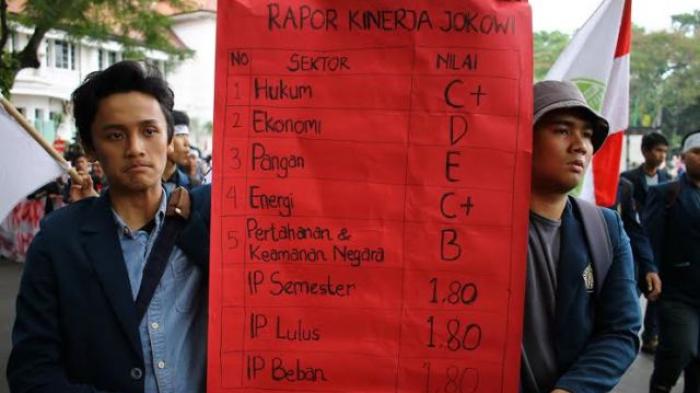 RAPOR KINERJA JOKOWI
NO SEKTOR NILAI
1 Hukum C+
2 Ekonomi D
3 Pangan E
4 Energi C+
5 Pertahanan & Keamanan Negara B
IP Semester 1.80
IP Lulus 1.80
IP Beban 1.80